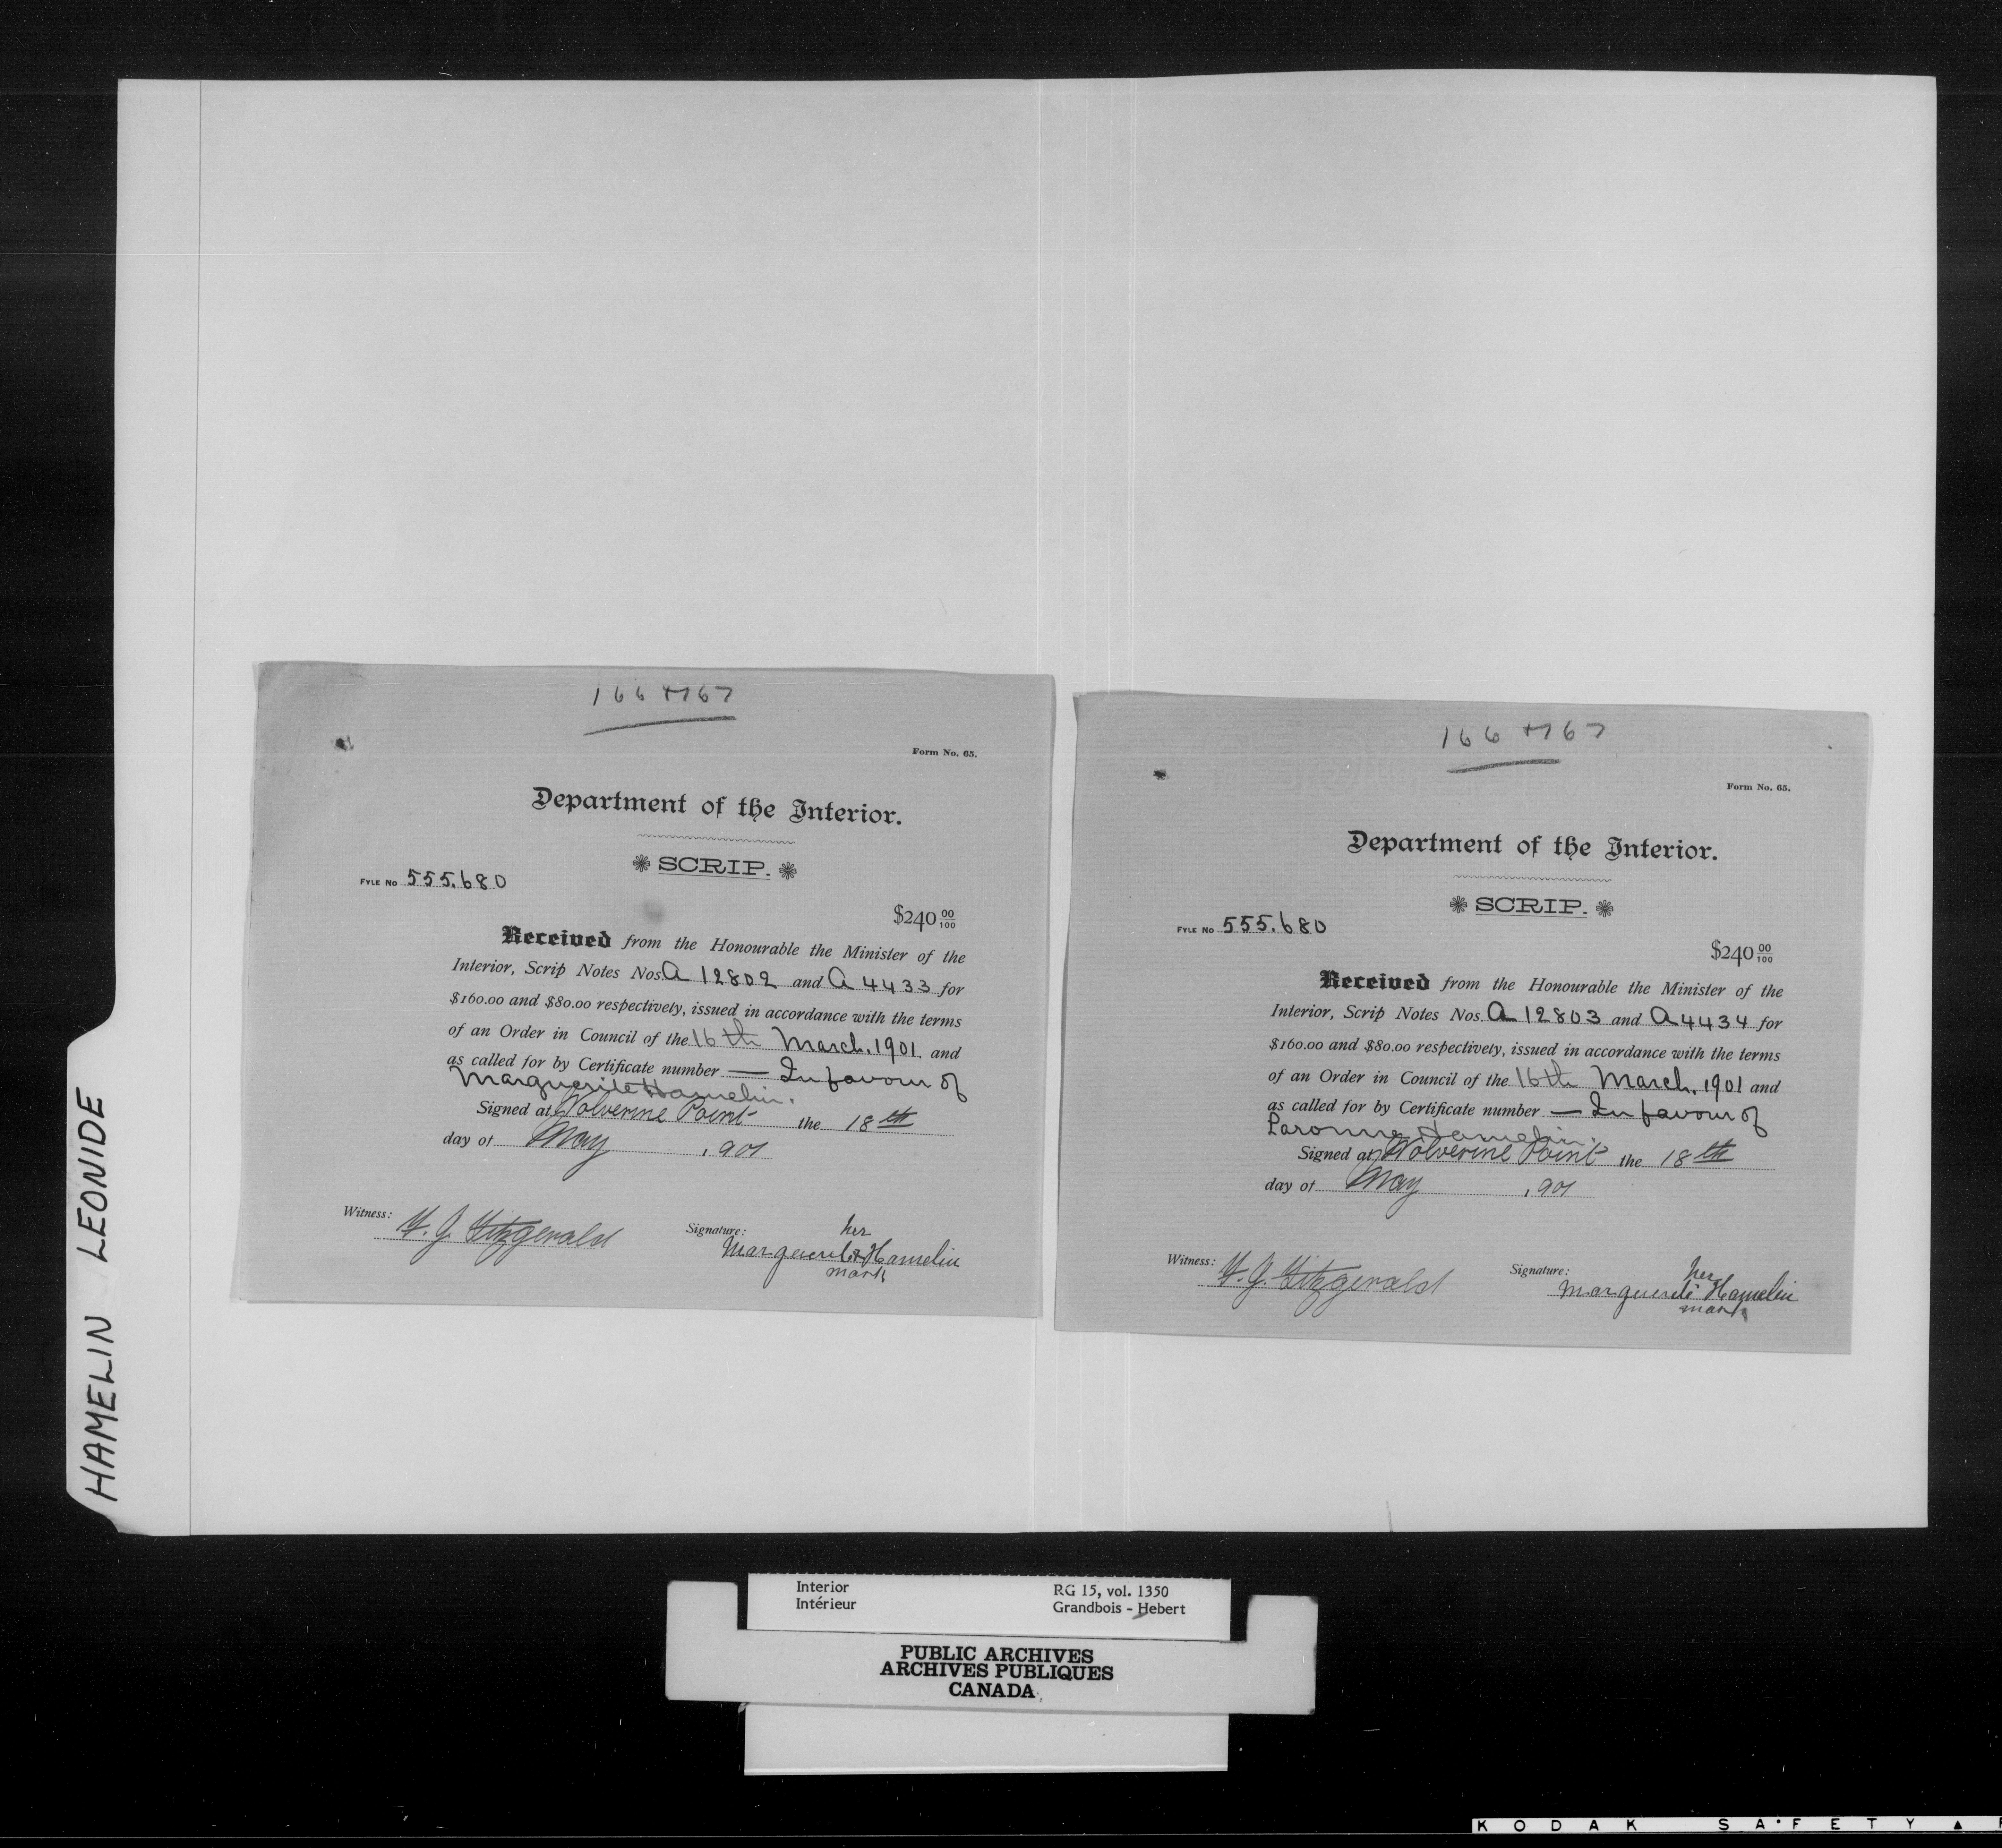 HAMELIN LEONIDE
166 + 167
Form No. 65.
Department of the Interior.
SCRIP.
FYLE No 555.680
$240 00/100
Received from the Honourable the Minister of the
Interior, Scrip Notes Nos. A 12802 and A 4433 for
$160.00 and $80.00 respectively, issued in accordance with the terms
of an Order in Council of the 16th March, 1901 and
as called for by Certificate number — In favour of
Marguerite Hamelin.
Signed at Wolverine Point the 18th
day of May , 901
Witness: F. J. Fitzgerald
Signature: her
Marguerite x Hamelin
mark
166 + 167
Form No. 65.
Department of the Interior.
SCRIP.
FYLE No 555.680
$240 00/100
Received from the Honourable the Minister of the
Interior, Scrip Notes Nos. A 12803 and A 4434 for
$160.00 and $80.00 respectively, issued in accordance with the terms
of an Order in Council of the 16th March, 1901 and
as called for by Certificate number — In favour of
Hamelin.
Signed at Wolverine Point the 18th
day of May , 901
Witness: F. J. Fitzgerald
Signature: her
Marguerite Hamelin
mark
Interior RG 15, vol. 1350
Intérieur Grandbois - Hebert
PUBLIC ARCHIVES
ARCHIVES PUBLIQUES
CANADA
KODAK SAFETY